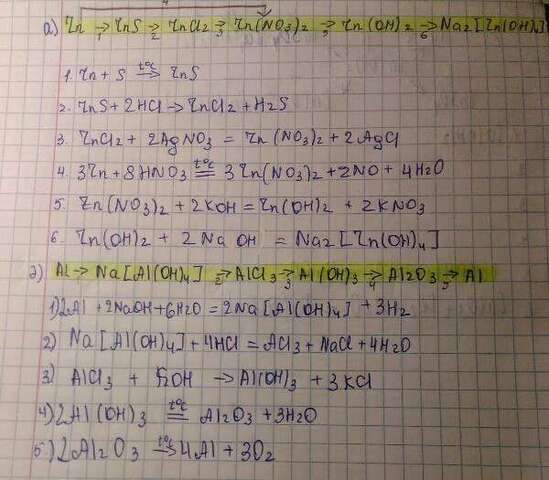 4
а) Zn →1 ZnS →2 ZnCl2 →3 Zn(NO3)2 →5 Zn(OH)2 →6 Na2[Zn(OH)4]
1. Zn + S t°C→ ZnS
2. ZnS + 2HCl → ZnCl2 + H2S
3. ZnCl2 + 2AgNO3 = Zn(NO3)2 + 2AgCl
4. 3Zn + 8HNO3 t°C= 3Zn(NO3)2 + 2NO + 4H2O
5. Zn(NO3)2 + 2KOH = Zn(OH)2 + 2KNO3
6. Zn(OH)2 + 2NaOH = Na2[Zn(OH)4]
Al → Na[Al(OH)4] →2 AlCl3 →3 Al(OH)3 →4 Al2O3 →5 Al
1) 2Al + 2NaOH + 6H2O = 2Na[Al(OH)4] + 3H2
2) Na[Al(OH)4] + 4HCl = AlCl3 + NaCl + 4H2O
3) AlCl3 + OH → Al(OH)3 + 3KCl
4) 2Al(OH)3 t°C= Al2O3 + 3H2O
5) 2Al2O3 t°C→ 4Al + 3O2